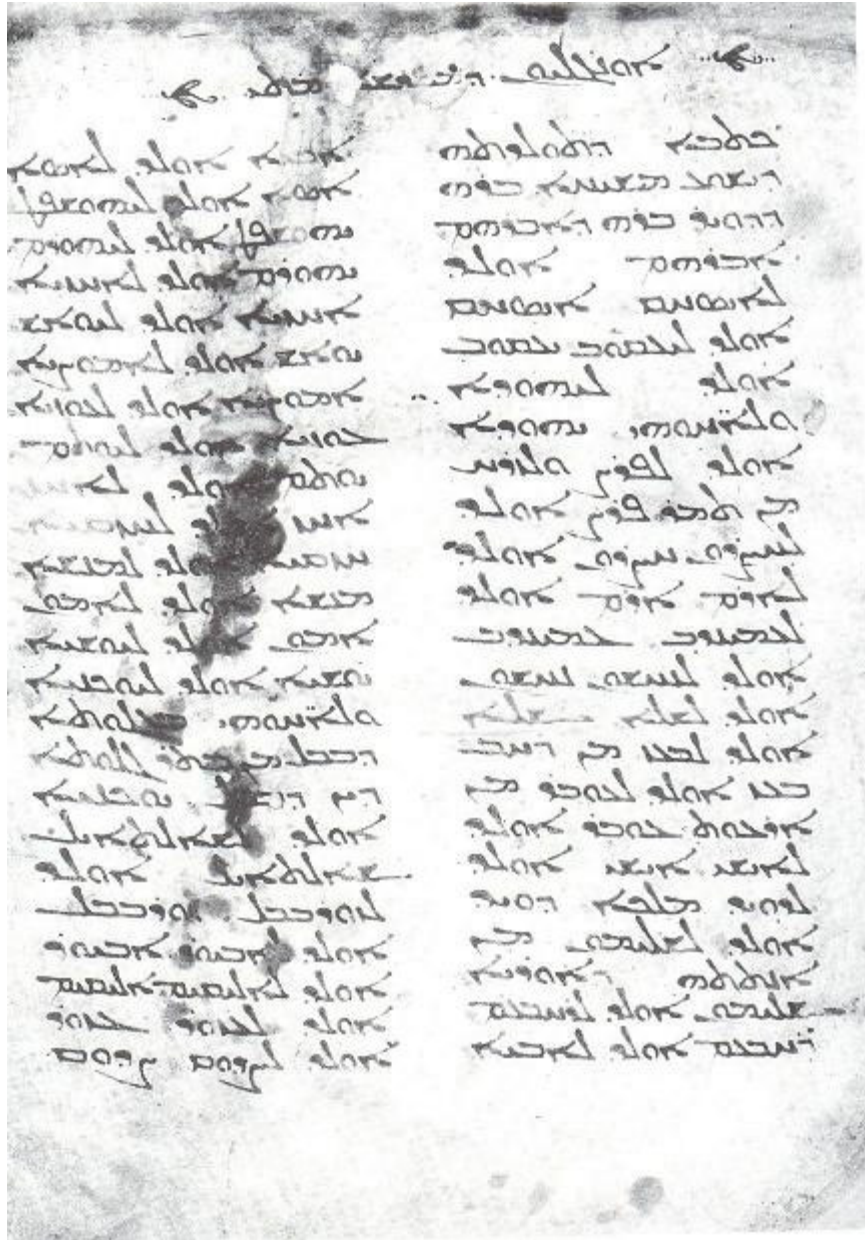 ܐܘܢܓܠܝܘܢ ܕܡܦܪ̈ܫܐ ܡܬܝ
ܟܬܒܐ ܕܬܘܠܕܬܗ
ܕܝܫܘܥ ܡܫܝܚܐ ܒܪܗ
ܕܕܘܝܕ ܒܪܗ ܕܐܒܪܗܡ
ܐܒܪܗܡ ܐܘܠܕ
ܠܐܝܣܚܩ ܐܝܣܚܩ
ܐܘܠܕ ܠܝܥܩܘܒ ܝܥܩܘܒ
ܐܘܠܕ ܠܝܗܘܕܐ
ܘܠܐܚ̈ܘܗܝ ܝܗܘܕܐ
ܐܘܠܕ ܠܦܪܨ ܘܠܙܪܚ
ܡܢ ܬܡܪ ܦܪܨ ܐܘܠܕ
ܠܚܨܪܘܢ ܚܨܪܘܢ ܐܘܠܕ
ܠܐܪܡ ܐܪܡ ܐܘܠܕ
ܠܥܡܝܢܕܒ ܥܡܝܢܕܒ
ܐܘܠܕ ܠܢܚܫܘܢ ܢܚܫܘܢ
ܐܘܠܕ ܠܫܠܐ ܫܠܐ
ܐܘܠܕ ܠܒܥܙ ܡܢ ܪܚܒ
ܒܥܙ ܐܘܠܕ ܠܥܘܒܝܕ ܡܢ
ܐܪܥܘܬ ܥܘܒܝܕ ܐܘܠܕ
ܠܐܝܫܝ ܐܝܫܝ ܐܘܠܕ
ܠܕܘܝܕ ܡܠܟܐ ܕܘܝܕ
ܐܘܠܕ ܠܫܠܝܡܘܢ ܡܢ
ܐܢܬܬܗ ܕܐܘܪܝܐ
ܫܠܝܡܘܢ ܐܘܠܕ ܠܪܚܒܥܡ
ܪܚܒܥܡ ܐܘܠܕ ܠܐܒܝܐ
ܐܒܝܐ ܐܘܠܕ ܠܐܣܐ
ܐܣܐ ܐܘܠܕ ܠܝܗܘܫܦܛ
ܝܗܘܫܦܛ ܐܘܠܕ ܠܝܗܘܪܡ
ܝܗܘܪܡ ܐܘܠܕ ܠܐܚܙܝܐ
ܐܚܙܝܐ ܐܘܠܕ ܠܝܘܐܫ
ܝܘܐܫ ܐܘܠܕ ܠܐܡܘܨܝܐ
ܐܡܘܨܝܐ ܐܘܠܕ ܠܥܘܙܝܐ
ܥܘܙܝܐ ܐܘܠܕ ܠܝܘܬܡ
ܝܘܬܡ ܐܘܠܕ ܠܐܚܙ
ܐܚܙ ܐܘܠܕ ܠܚܙܩܝܐ
ܚܙܩܝܐ ܐܘܠܕ ܠܡܢܫܐ
ܡܢܫܐ ܐܘܠܕ ܠܐܡܘܢ
ܐܡܘܢ ܐܘܠܕ ܠܝܘܫܝܐ
ܝܘܫܝܐ ܐܘܠܕ ܠܝܘܟܢܝܐ
ܘܠܐܚ̈ܘܗܝ ܒܓܠܘܬܐ
ܕܒܒܠ ܡܢ ܒܬܪ ܓܠܘܬܐ
ܕܝܢ ܕܒܒܠ ܝܘܟܢܝܐ
ܐܘܠܕ ܠܫܠܬܐܝܠ
ܫܠܬܐܝܠ ܐܘܠܕ
ܠܙܘܪܒܒܠ ܙܘܪܒܒܠ
ܐܘܠܕ ܠܐܒܝܘܪ ܐܒܝܘܪ
ܐܘܠܕ ܠܐܠܝܩܝܡ ܐܠܝܩܝܡ
ܐܘܠܕ ܠܥܙܘܪ ܥܙܘܪ
ܐܘܠܕ ܠܨܕܘܩ ܨܕܘܩ